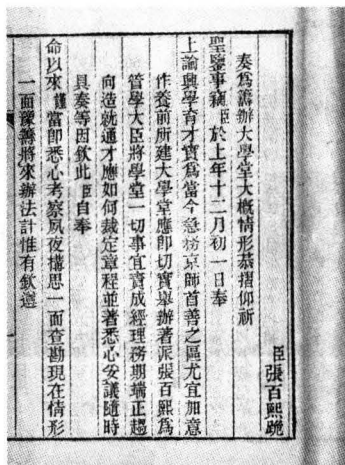 臣張百熙跪
奏爲籌辦大學堂大概情形恭摺仰祈
聖鑒事竊臣於上年十二月初一日奉
上諭興學育才實爲當今急務京師首善之區尤宜加意
作養前所建大學堂應卽切實舉辦著派張百熙爲
管學大臣將學堂一切事宜責成經理務期端正趨
向造就通才應如何裁定章程並著悉心妥議隨時
具奏等因欽此臣自奉
命以來謹當卽悉心考察夙夜構思一面查勘現在情形
一面豫籌將來辦法計惟有欽遵